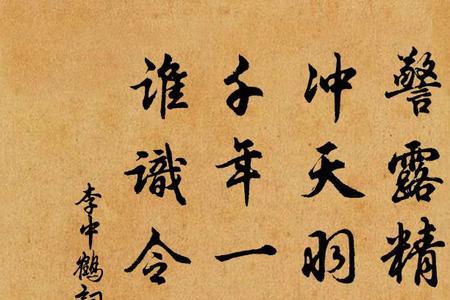 警露精
冲天羽
千年一
谁識令
李中鹤詞